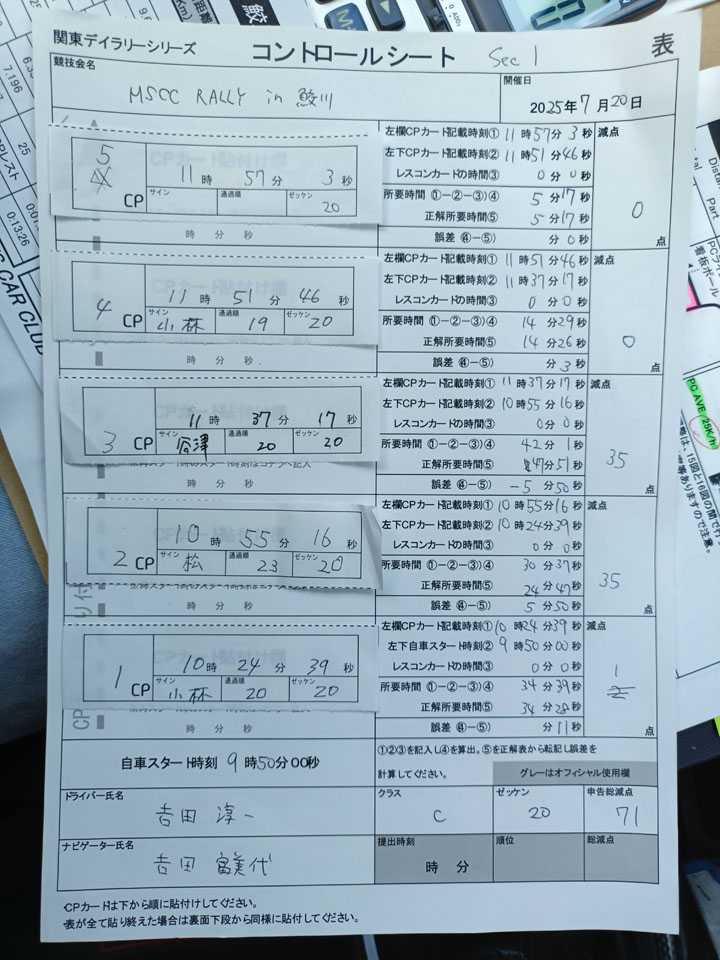 関東デイラリーシリーズ コントロールシート Sec 1 表
競技会名 開催日
MSCC RALLY in 鮫川 2025年7月20日
5 CP 11時57分3秒
サイン 通過順 ゼッケン 20
左欄CPカード記載時刻① 11時57分3秒 減点
左下CPカード記載時刻② 11時51分46秒
レスコンカードの時間③ 0分0秒
所要時間 (①-②-③)④ 5分17秒
正解所要時間⑤ 5分17秒
誤差 (④-⑤) 分0秒
0点
時 分 秒
4 CP 11時51分46秒
サイン 小林 通過順 19 ゼッケン 20
左欄CPカード記載時刻① 11時51分46秒 減点
左下CPカード記載時刻② 11時37分17秒
レスコンカードの時間③ 0分0秒
所要時間 (①-②-③)④ 14分29秒
正解所要時間⑤ 14分26秒
誤差 (④-⑤) 分3秒
0点
時 分 秒
3 CP 11時37分17秒
サイン 谷津 通過順 20 ゼッケン 20
左欄CPカード記載時刻① 11時37分17秒 減点
左下CPカード記載時刻② 10時55分16秒
レスコンカードの時間③ 0分0秒
所要時間 (①-②-③)④ 42分1秒
正解所要時間⑤ 47分51秒
誤差 (④-⑤) -5分50秒
35点
2 CP 10時55分16秒
サイン 松 通過順 23 ゼッケン 20
左欄CPカード記載時刻① 10時55分16秒 減点
左下CPカード記載時刻② 10時24分39秒
レスコンカードの時間③ 0分0秒
所要時間 (①-②-③)④ 30分37秒
正解所要時間⑤ 24分47秒
誤差 (④-⑤) 5分50秒
35点
時 分 秒
1 CP 10時24分39秒
サイン 小林 通過順 20 ゼッケン 20
左欄CPカード記載時刻① 10時24分39秒 減点
左下自車スタート時刻② 9時50分00秒
レスコンカードの時間③ 0分0秒
所要時間 (①-②-③)④ 34分39秒
正解所要時間⑤ 34分28秒
誤差 (④-⑤) 分11秒
1点
時 分 秒
自車スタート時刻 9時50分00秒
①②③を記入し④を算出。⑤を正解表から転記し誤差を
計算してください。 グレーはオフィシャル使用欄
ドライバー氏名 クラス ゼッケン 申告総減点
吉田 淳一 C 20 71
ナビゲーター氏名 提出時刻 順位 総減点
吉田 富美代 時 分
・CPカードは下から順に貼付けしてください。
・表が全て貼り終えた場合は裏面下段から同様に貼付してください。
7.196
25
0:13:26
CAR CLUB
PC AVE 25K/h
看板ボール